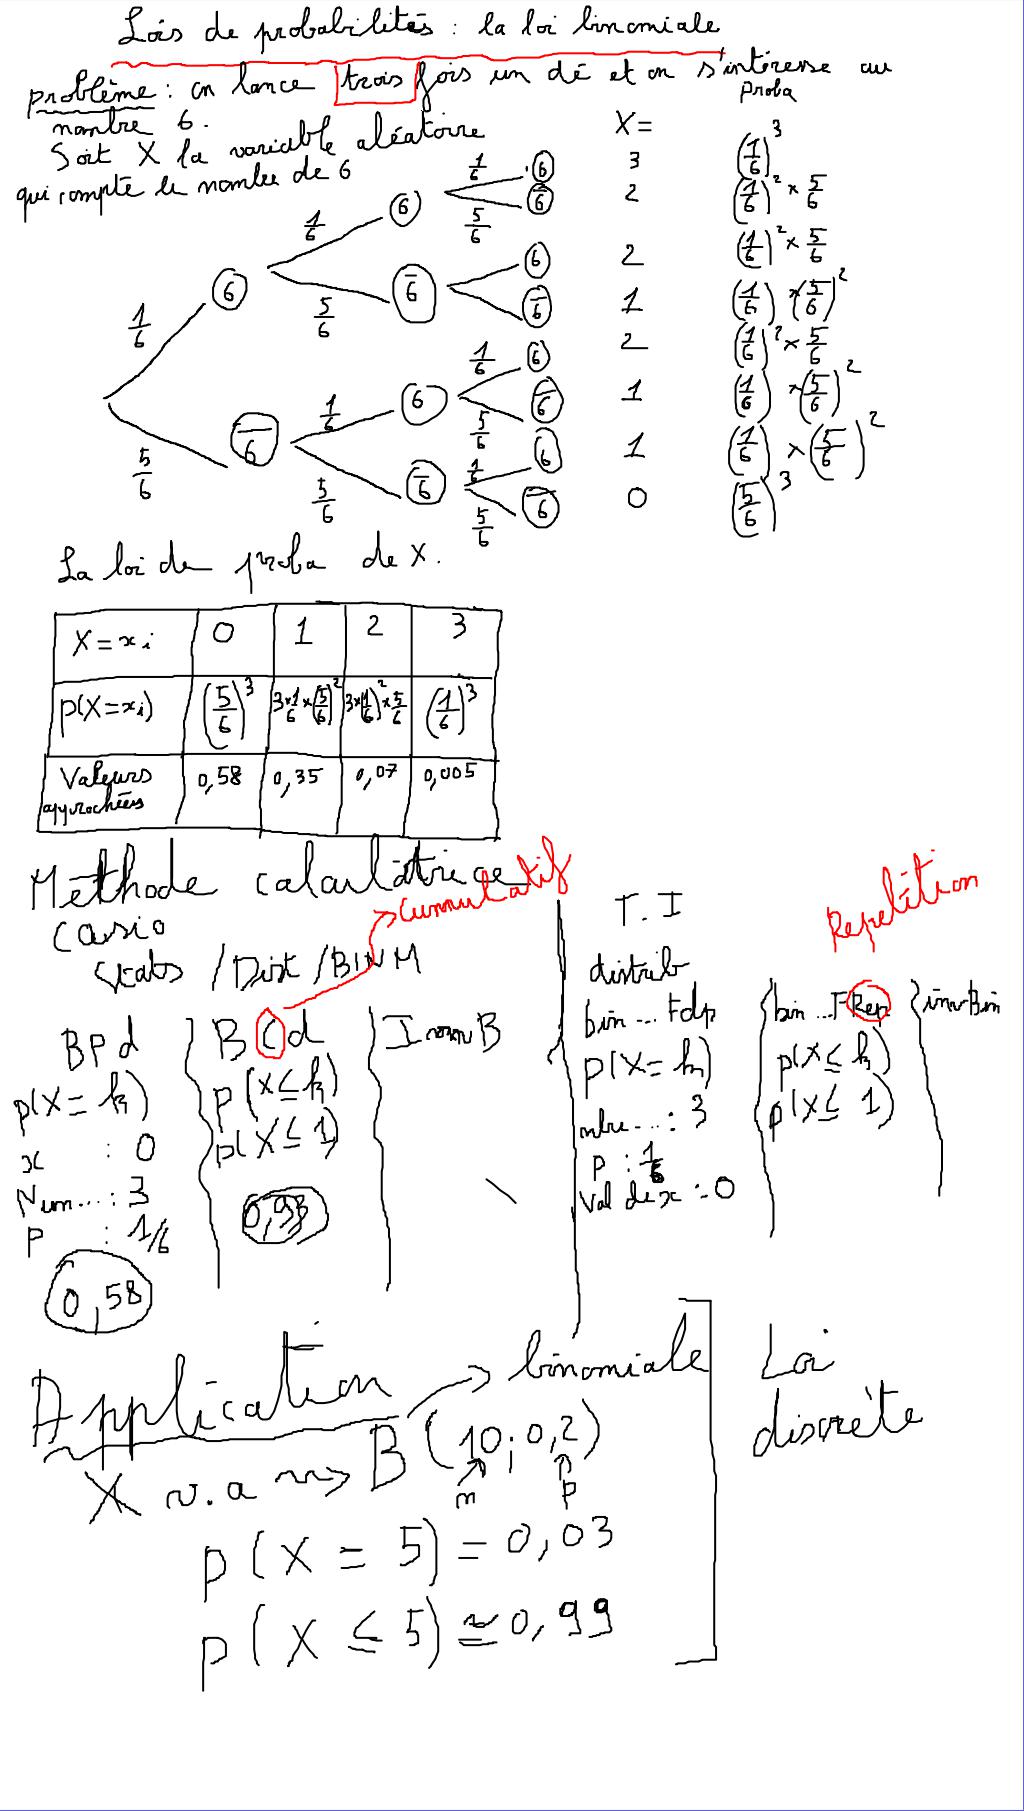 Lois de probabilités : la loi binomiale
problème : on lance trois fois un dé et on s'intéresse au
nombre 6.
Soit X la variable aléatoire
qui compte le nombre de 6
X=
Proba
1/6 6 3 (1/6)^3
1/6 6 5/6 6̅ 2 (1/6)^2 × 5/6
6 2 (1/6)^2 × 5/6
1/6 6 5/6 6̅ 6̅ 1 (1/6) × (5/6)^2
1/6 6 2 (1/6)^2 × 5/6
1/6 6 5/6 6̅ 1 (1/6) × (5/6)^2
5/6 6̅ 1/6 6 1 (1/6) × (5/6)^2
5/6 6̅ 5/6 6̅ 0 (5/6)^3
La loi de proba de X.
X = xi 0 1 2 3
p(X=xi) (5/6)^3 3×1/6×(5/6)^2 3×(1/6)^2×5/6 (1/6)^3
Valeurs approchées 0,58 0,35 0,07 0,005
Méthode calculatrice
Cummulatif
Casio
Stats / Dist / BINM
BPd
p(X = k)
x : 0
Num... : 3
P : 1/6
0,58
BCd
p(X ≤ k)
p(X ≤ 1)
0,93
InvB
T.I
Repetition
distrib
bin... Fdp
p(X = k)
nbre... : 3
P : 1/6
Val de x : 0
bin...FRep
p(X ≤ k)
p(X ≤ 1)
invBin
Application
binomiale
X v.a ~> B (10 ; 0,2)
n p
p(X = 5) = 0,03
p(X ≤ 5) ≃ 0,99
Loi
discrète